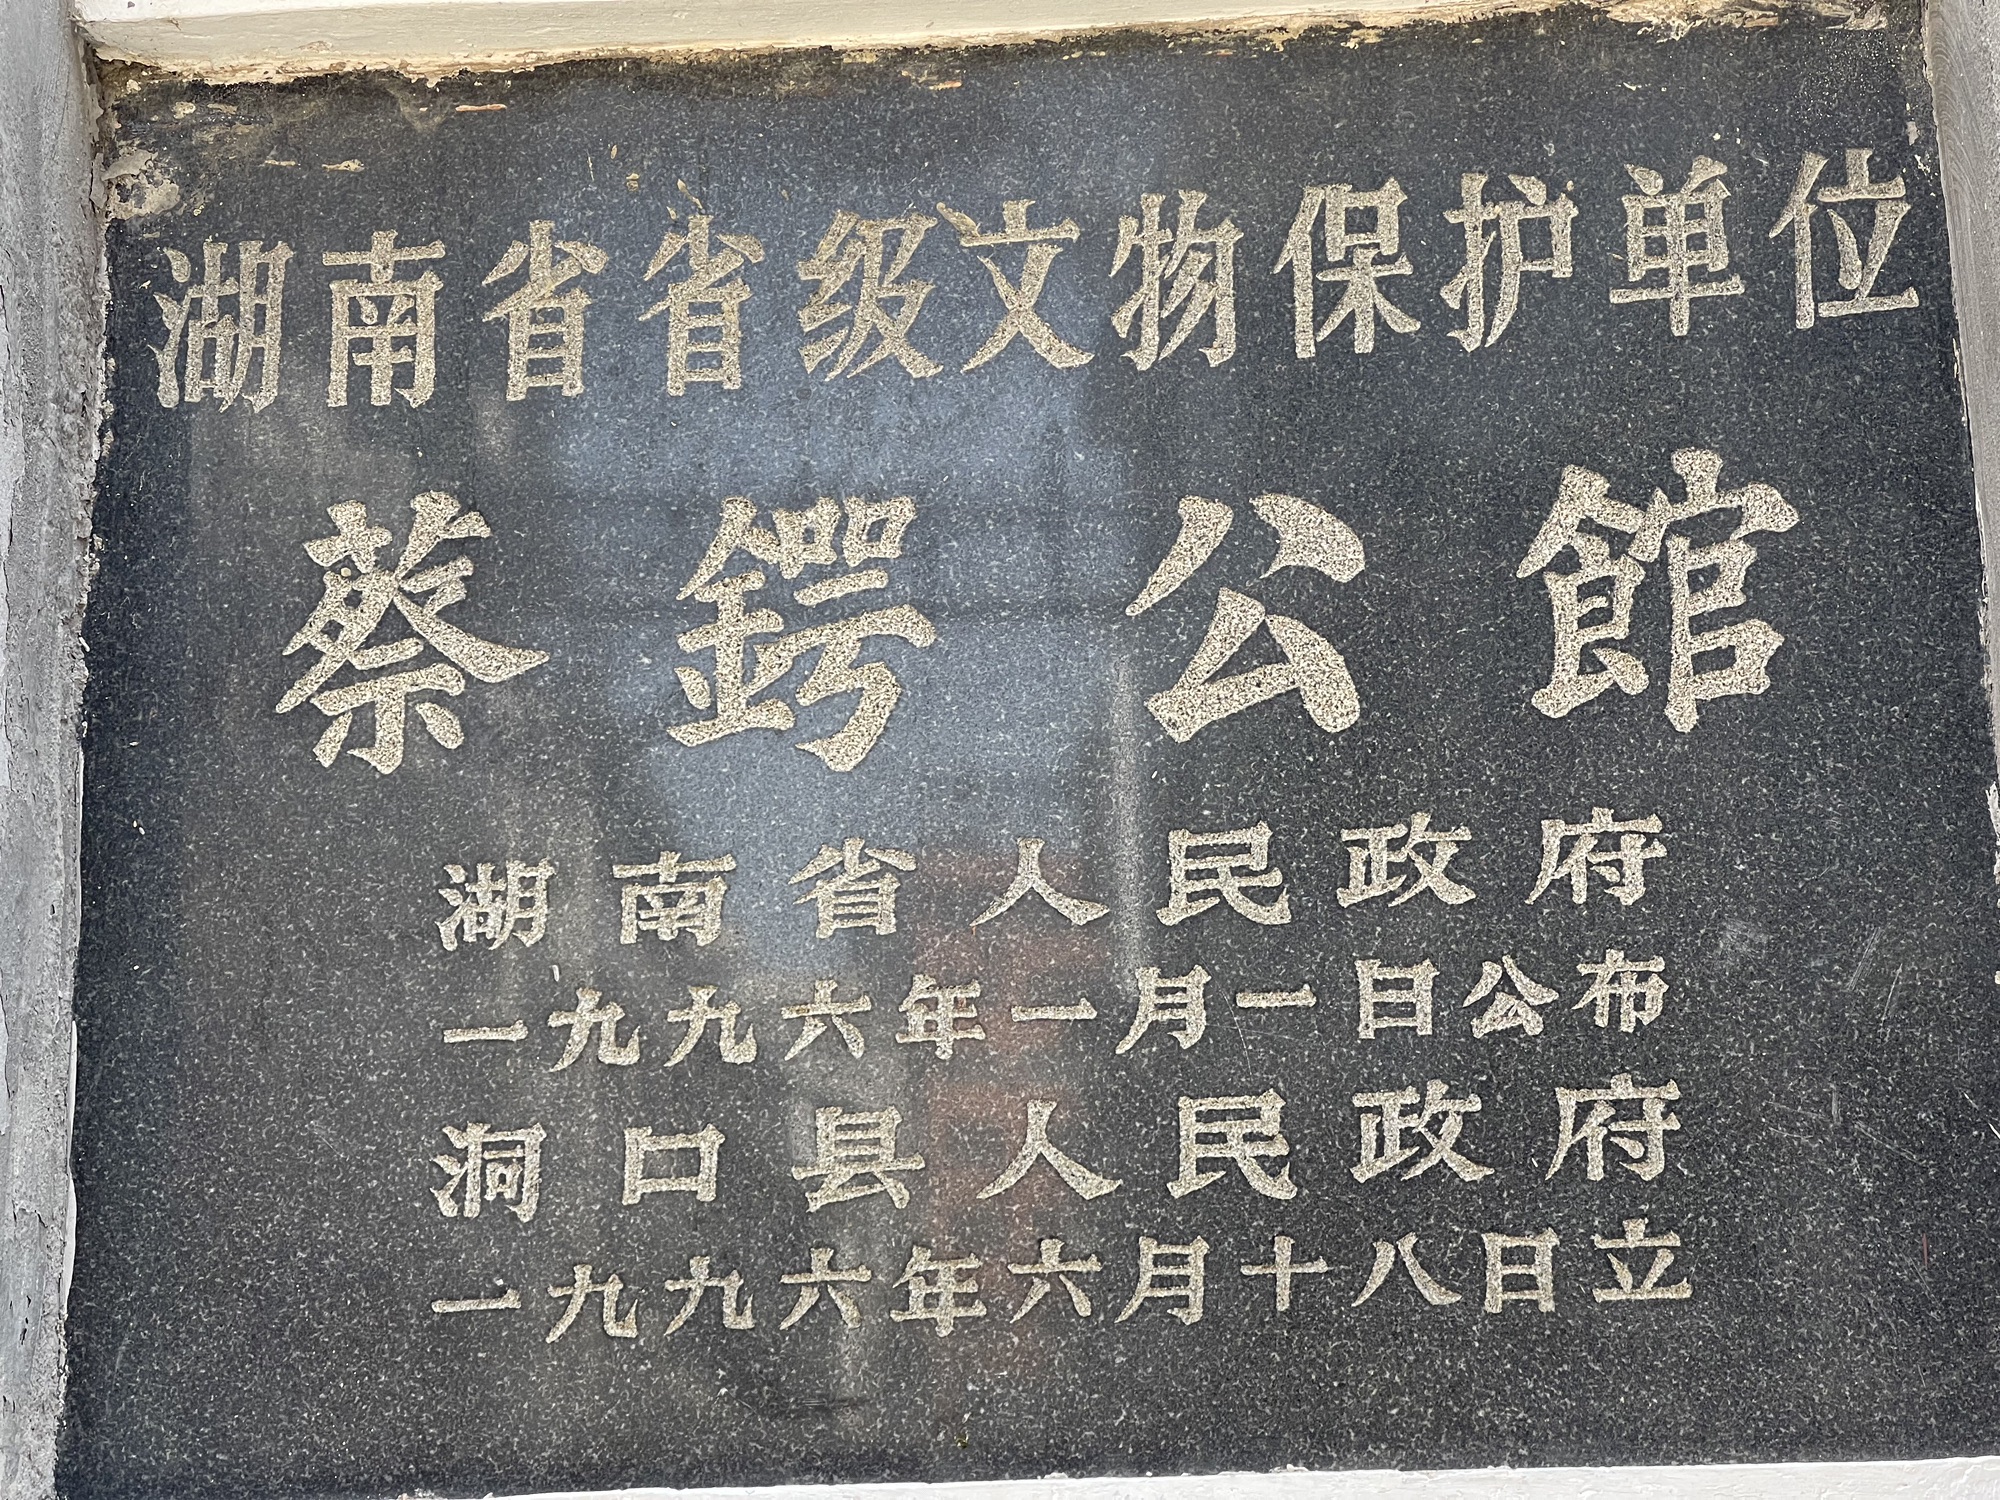 湖南省省级文物保护单位
蔡鍔公館
湖南省人民政府
一九九六年一月一日公布
洞口县人民政府
一九九六年六月十八日立